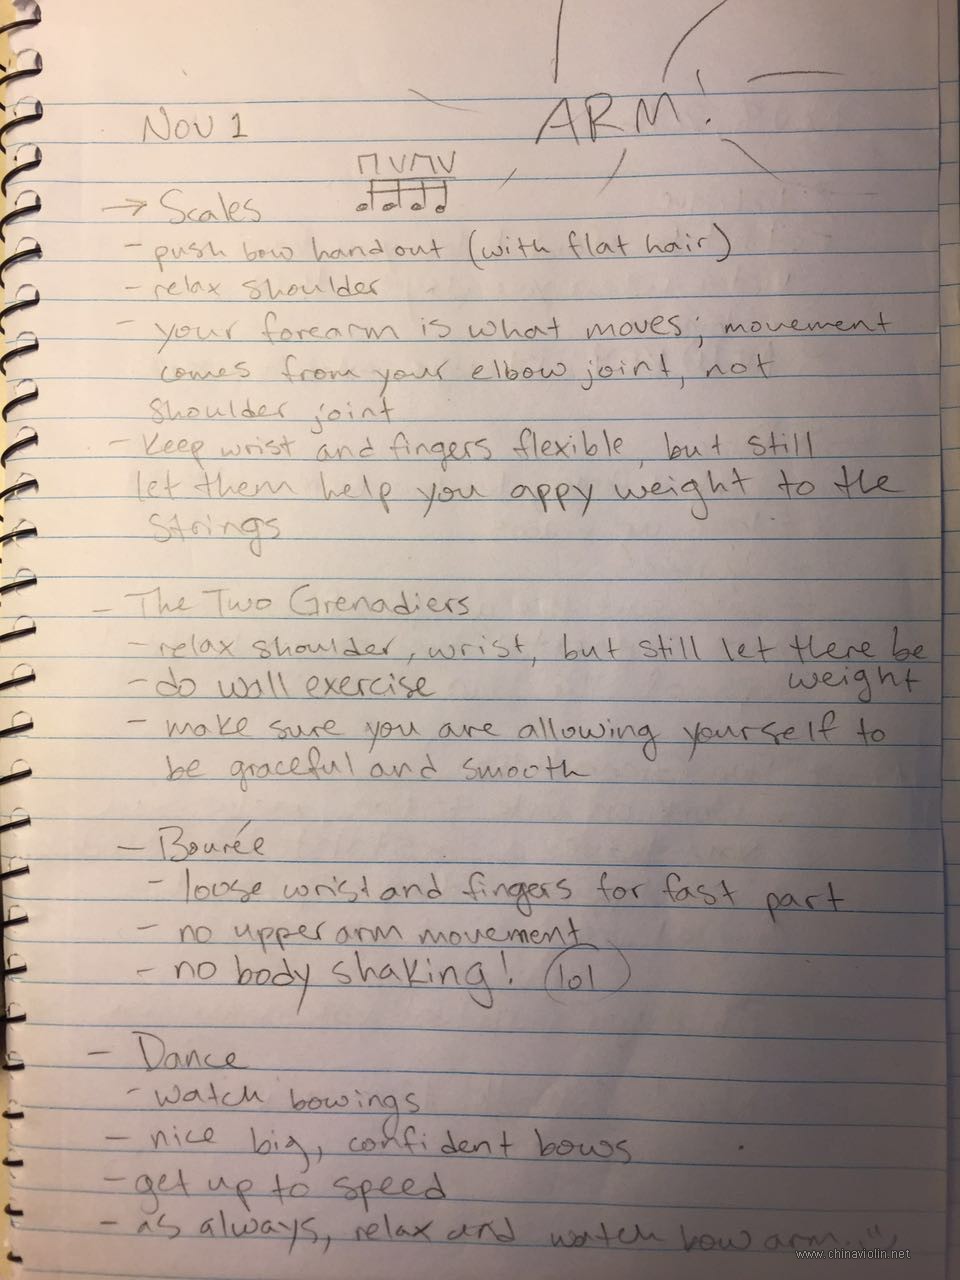 Nov 1
ARM!
⊓ V ⊓ V
→ Scales
- push bow hand out (with flat hair)
- relax shoulder
- your forearm is what moves; movement
comes from your elbow joint, not
shoulder joint
- Keep wrist and fingers flexible, but still
let them help you appy weight to the
strings
- The Two Grenadiers
- relax shoulder, wrist, but still let there be
weight
- do wall exercise
- make sure you are allowing yourself to
be graceful and smooth
- Bourée
- loose wrist and fingers for fast part
- no upper arm movement
- no body shaking! lol
- Dance
- watch bowings
- nice big, confident bows
- get up to speed
- as always, relax and watch bow arm
www.chinaviolin.net